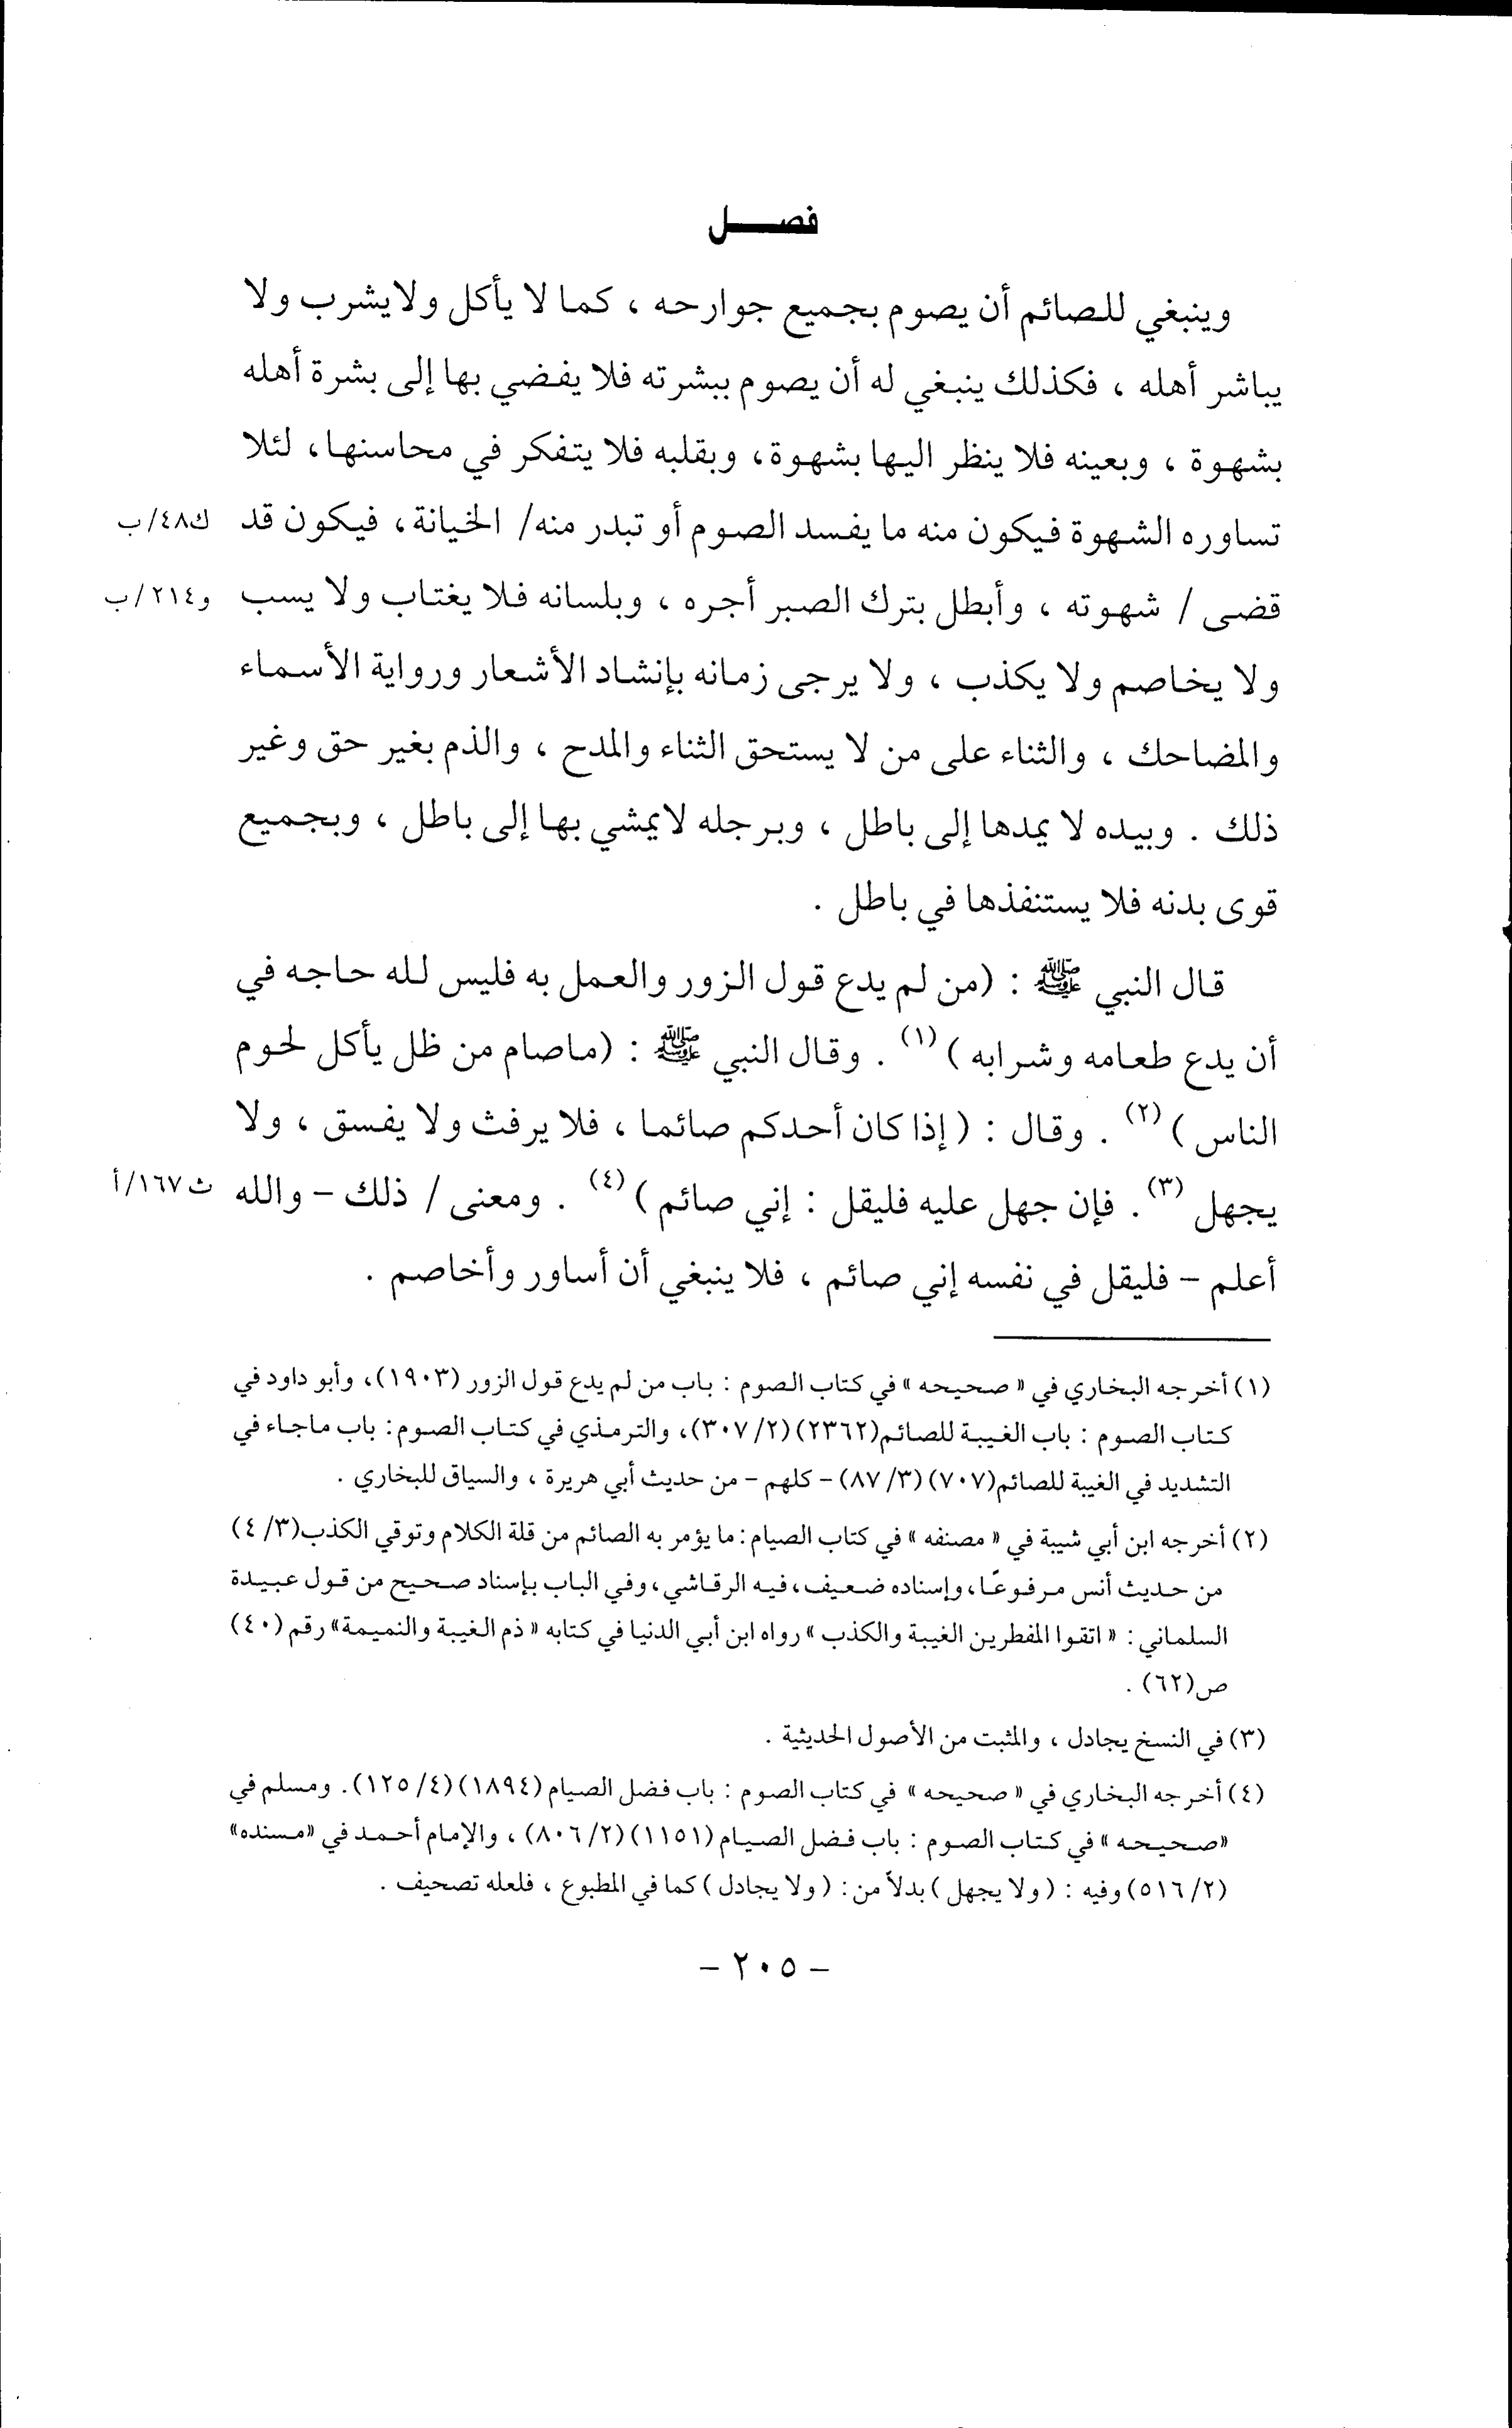 فصــــل
وينبغي للصائم أن يصوم بجميع جوارحه ، كما لا يأكل ولايشرب ولا
يباشر أهله ، فكذلك ينبغي له أن يصوم ببشرته فلا يفضي بها إلى بشرة أهله
بشهوة ، وبعينه فلا ينظر اليها بشهوة، وبقلبه فلا يتفكر في محاسنها، لئلا
تساوره الشهوة فيكون منه ما يفسد الصوم أو تبدر منه/ الخيانة، فيكون قد ك٤٨/ب
قضى / شهوته ، وأبطل بترك الصبر أجره ، وبلسانه فلا يغتاب ولا يسب و٢١٤/ب
ولا يخاصم ولا يكذب ، ولا يرجى زمانه بإنشاد الأشعار ورواية الأسماء
والمضاحك ، والثناء على من لا يستحق الثناء والمدح ، والذم بغير حق وغير
ذلك . وبيده لا يمدها إلى باطل ، وبرجله لايمشي بها إلى باطل ، وبجميع
قوى بدنه فلا يستنفذها في باطل .
قال النبي ﷺ : (من لم يدع قول الزور والعمل به فليس لله حاجه في
أن يدع طعامه وشرابه )(١) . وقال النبي ﷺ : (ماصام من ظل يأكل لحوم
الناس )(٢) . وقال : ( إذا كان أحدكم صائما ، فلا يرفث ولا يفسق ، ولا
يجهل (٣). فإن جهل عليه فليقل : إني صائم )(٤) . ومعنى / ذلك – والله ث١٦٧/أ
أعلم – فليقل في نفسه إني صائم ، فلا ينبغي أن أساور وأخاصم .
(١) أخرجه البخاري في « صحيحه » في كتاب الصوم : باب من لم يدع قول الزور (١٩٠٣)، وأبو داود في
كتاب الصوم : باب الغيبة للصائم(٢٣٦٢) (٣٠٧/٢)، والترمذي في كتاب الصوم: باب ماجاء في
التشديد في الغيبة للصائم(٧٠٧) (٨٧/٣) – كلهم – من حديث أبي هريرة ، والسياق للبخاري .
(٢) أخرجه ابن أبي شيبة في « مصنفه » في كتاب الصيام: ما يؤمر به الصائم من قلة الكلام وتوقي الكذب(٤/٣)
من حديث أنس مرفوعًا، وإسناده ضعيف، فيه الرقاشي، وفي الباب بإسناد صحيح من قول عبيدة
السلماني : « اتقوا المفطرين الغيبة والكذب » رواه ابن أبي الدنيا في كتابه « ذم الغيبة والنميمة» رقم (٤٠)
ص(٦٢) .
(٣) في النسخ يجادل ، والمثبت من الأصول الحديثية .
(٤) أخرجه البخاري في « صحيحه » في كتاب الصوم : باب فضل الصيام (١٨٩٤) (١٢٥/٤). ومسلم في
«صحيحه » في كتاب الصوم : باب فضل الصيام (١١٥١) (٨٠٦/٢) ، والإمام أحمد في «مسنده»
(٥١٦/٢) وفيه : ( ولا يجهل ) بدلاً من : ( ولا يجادل ) كما في المطبوع ، فلعله تصحيف .
– ٢٠٥ –